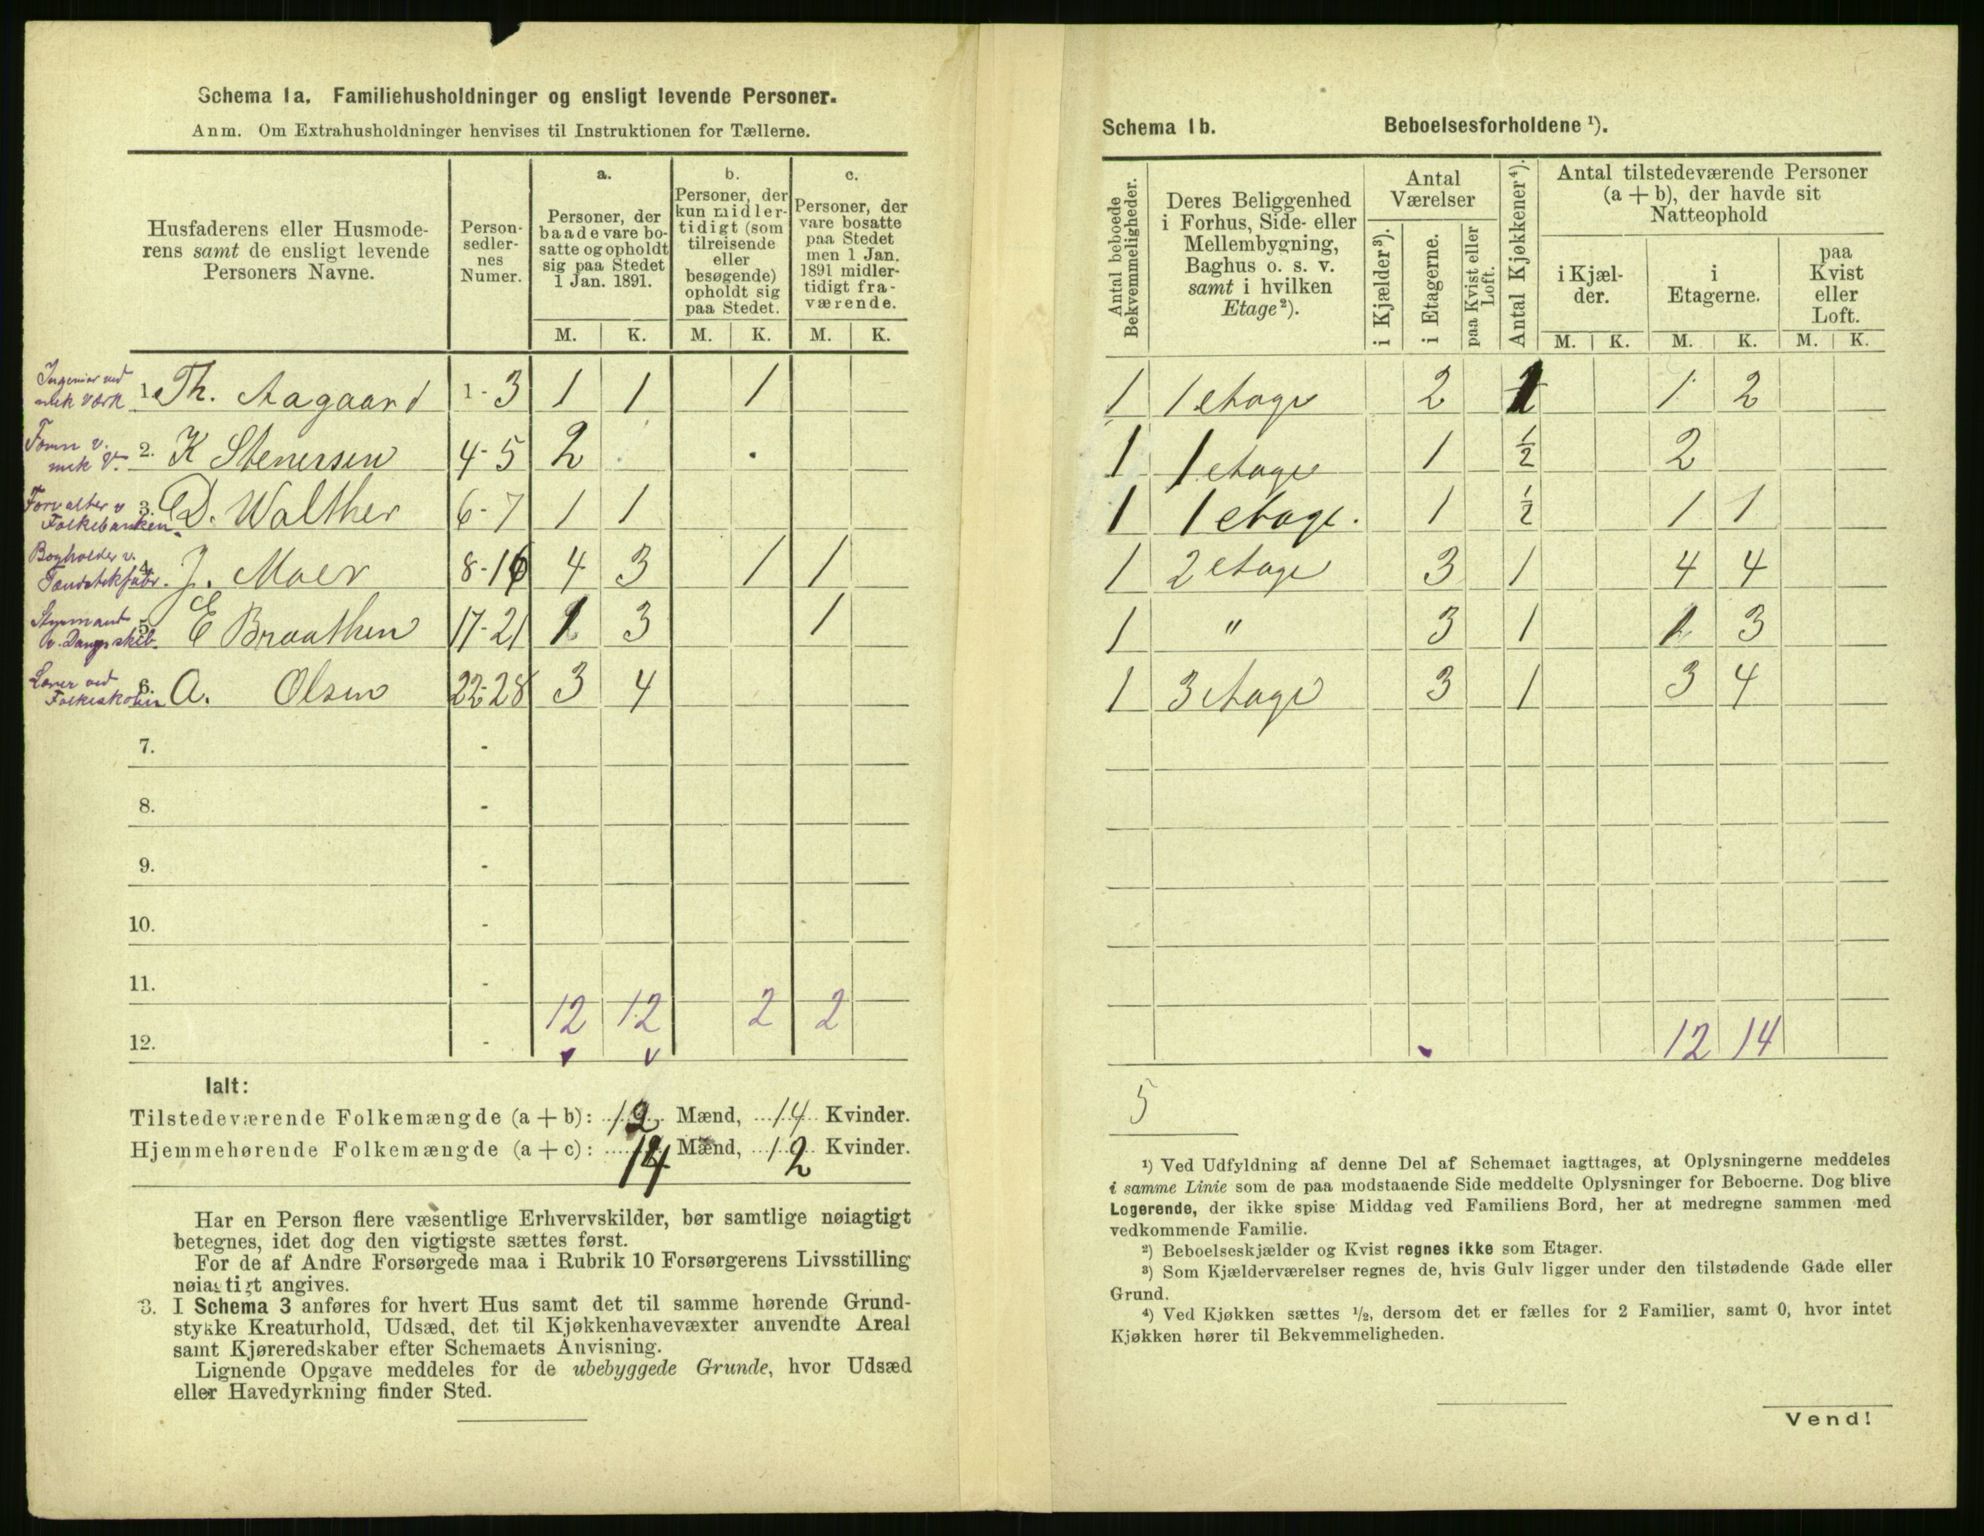 Schema 1a. Familiehusholdninger og ensligt levende Personer.
Anm. Om Extrahusholdninger henvises til Instruktionen for Tællerne.
Husfaderens eller Husmode-
rens samt de ensligt levende
Personers Navne.
Person-
sedler-
nes
Numer.
a.
Personer, der
baade vare bo-
satte og opholdt
sig paa Stedet
1 Jan. 1891.
b.
Personer, der
kun midler-
tidigt (som
tilreisende
eller
besøgende)
opholdt sig
paa Stedet.
c.
Personer, der
vare bosatte
paa Stedet
men 1 Jan.
1891 midler-
tidigt fra-
værende.
M. K. M. K. M. K.
Ingeniør ved
mek værk
1. Th. Aagaard 1-3 1 1 1
Form v.
mek V.
2. K Stenersen 4-5 2
Forvalter v
Folkebanken
3. D. Walther 6-7 1 1
Bogholder v.
4. J. Moer 8-16 4 3 1 1
Styrmand
v. Dampskib.
5. E Braathen 17-21 1 3 1
Lærer ved
Folkeskolen
6. A. Olsen 22-28 3 4
7. -
8. -
9. -
10. -
11. -
12 12 2 2
12. -
Ialt:
Tilstedeværende Folkemængde (a + b): 12 Mænd, 14 Kvinder.
Hjemmehørende Folkemængde (a + c): 14 Mænd, 12 Kvinder.
Har en Person flere væsentlige Erhvervskilder, bør samtlige nøiagtigt
betegnes, idet dog den vigtigste sættes først.
For de af Andre Forsørgede maa i Rubrik 10 Forsørgerens Livsstilling
nøiagtigt angives.
3. I Schema 3 anføres for hvert Hus samt det til samme hørende Grund-
stykke Kreaturhold, Udsæd, det til Kjøkkenhavevæxter anvendte Areal
samt Kjøreredskaber efter Schemaets Anvisning.
Lignende Opgave meddeles for de ubebyggede Grunde, hvor Udsæd
eller Havedyrkning finder Sted.
Schema 1b. Beboelsesforholdene ¹).
Antal beboede
Bekvemmeligheder.
Deres Beliggenhed
i Forhus, Side- eller
Mellembygning,
Baghus o. s. v.
samt i hvilken
Etage²).
Antal
Værelser
i Kjælder³).
i Etagerne.
paa Kvist eller
Loft.
Antal Kjøkkener⁴).
Antal tilstedeværende Personer
(a + b), der havde sit
Natteophold
i Kjæl-
der.
i
Etagerne.
paa
Kvist
eller
Loft.
M. K. M. K. M. K.
1 1 etage 2 1 1 2
1 1 etage 1 ½ 2
1 1 etage. 1 ½ 1 1
1 2 etage 3 1 4 4
1 " 3 1 1 3
1 3 etage 3 1 3 4
12 14
5
¹) Ved Udfyldning af denne Del af Schemaet iagttages, at Oplysningerne meddeles
i samme Linie som de paa modstaaende Side meddelte Oplysninger for Beboerne. Dog blive
Logerende, der ikke spise Middag ved Familiens Bord, her at medregne sammen med
vedkommende Familie.
²) Beboelseskjælder og Kvist regnes ikke som Etager.
³) Som Kjælderværelser regnes de, hvis Gulv ligger under den tilstødende Gade eller
Grund.
⁴) Ved Kjøkken sættes ½, dersom det er fælles for 2 Familier, samt 0, hvor intet
Kjøkken hører til Bekvemmeligheden.
Vend!